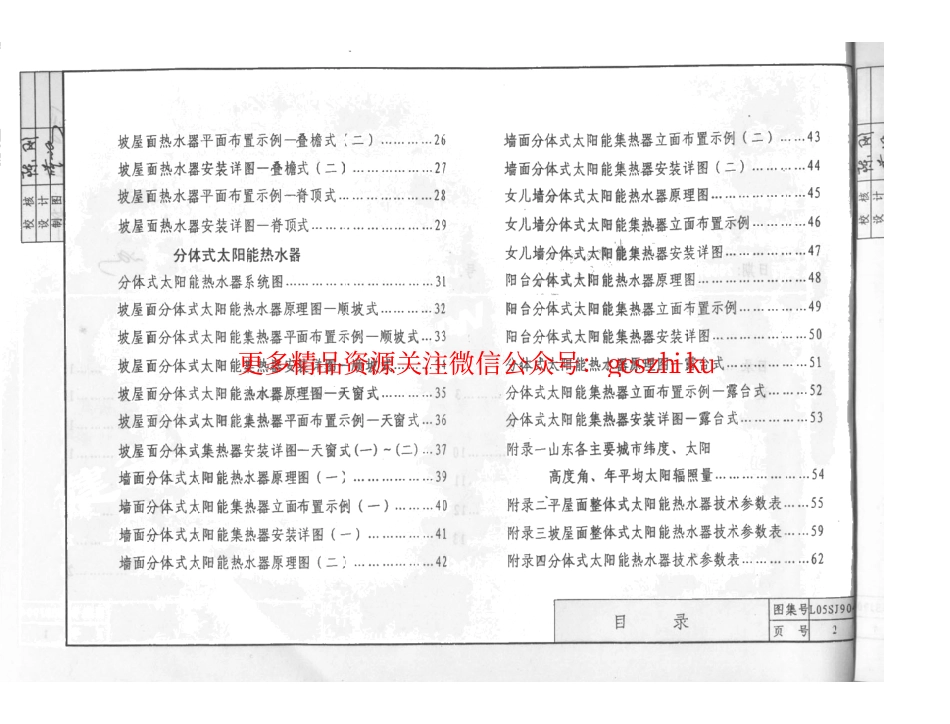 坡屋面热水器平面布置示例—叠檐式(二)…………26
坡屋面热水器安装详图—叠檐式(二)………………27
坡屋面热水器平面布置示例—脊顶式………………28
坡屋面热水器安装详图—脊顶式……………………29
分体式太阳能热水器
分体式太阳能热水器系统图…………………………31
坡屋面分体式太阳能热水器原理图—顺坡式………32
坡屋面分体式太阳能集热器平面布置示例—顺坡式…33
坡屋面分体式太阳能集热器安装详图—顺坡式
坡屋面分体式太阳能热水器原理图—天窗式………35
坡屋面分体式太阳能集热器平面布置示例—天窗式…36
坡屋面分体式集热器安装详图—天窗式(一)~(二)…37
墙面分体式太阳能热水器原理图(一)………………39
墙面分体式太阳能集热器立面布置示例(一)………40
墙面分体式太阳能集热器安装详图(一)……………41
墙面分体式太阳能热水器原理图(二)………………42
墙面分体式太阳能集热器立面布置示例(二)……43
墙面分体式太阳能集热器安装详图(二)…………44
女儿墙分体式太阳能热水器原理图………………45
女儿墙分体式太阳能集热器立面布置示例………46
女儿墙分体式太阳能集热器安装详图……………47
阳台分体式太阳能热水器原理图…………………48
阳台分体式太阳能集热器立面布置示例…………49
阳台分体式太阳能集热器安装详图………………50
分体式太阳能热水器原理图—露台式……………51
分体式太阳能集热器立面布置示例—露台式……52
分体式太阳能集热器安装详图—露台式…………53
附录一山东各主要城市纬度、太阳
高度角、年平均太阳辐照量……………54
附录二平屋面整体式太阳能热水器技术参数表……55
附录三坡屋面整体式太阳能热水器技术参数表……59
附录四分体式太阳能热水器技术参数表……………62
更多精品资源关注微信公众号:goszhiku
目 录
图集号 L05SJ90
页 号 2
校 核
设 计
制 图
校 核
设 计